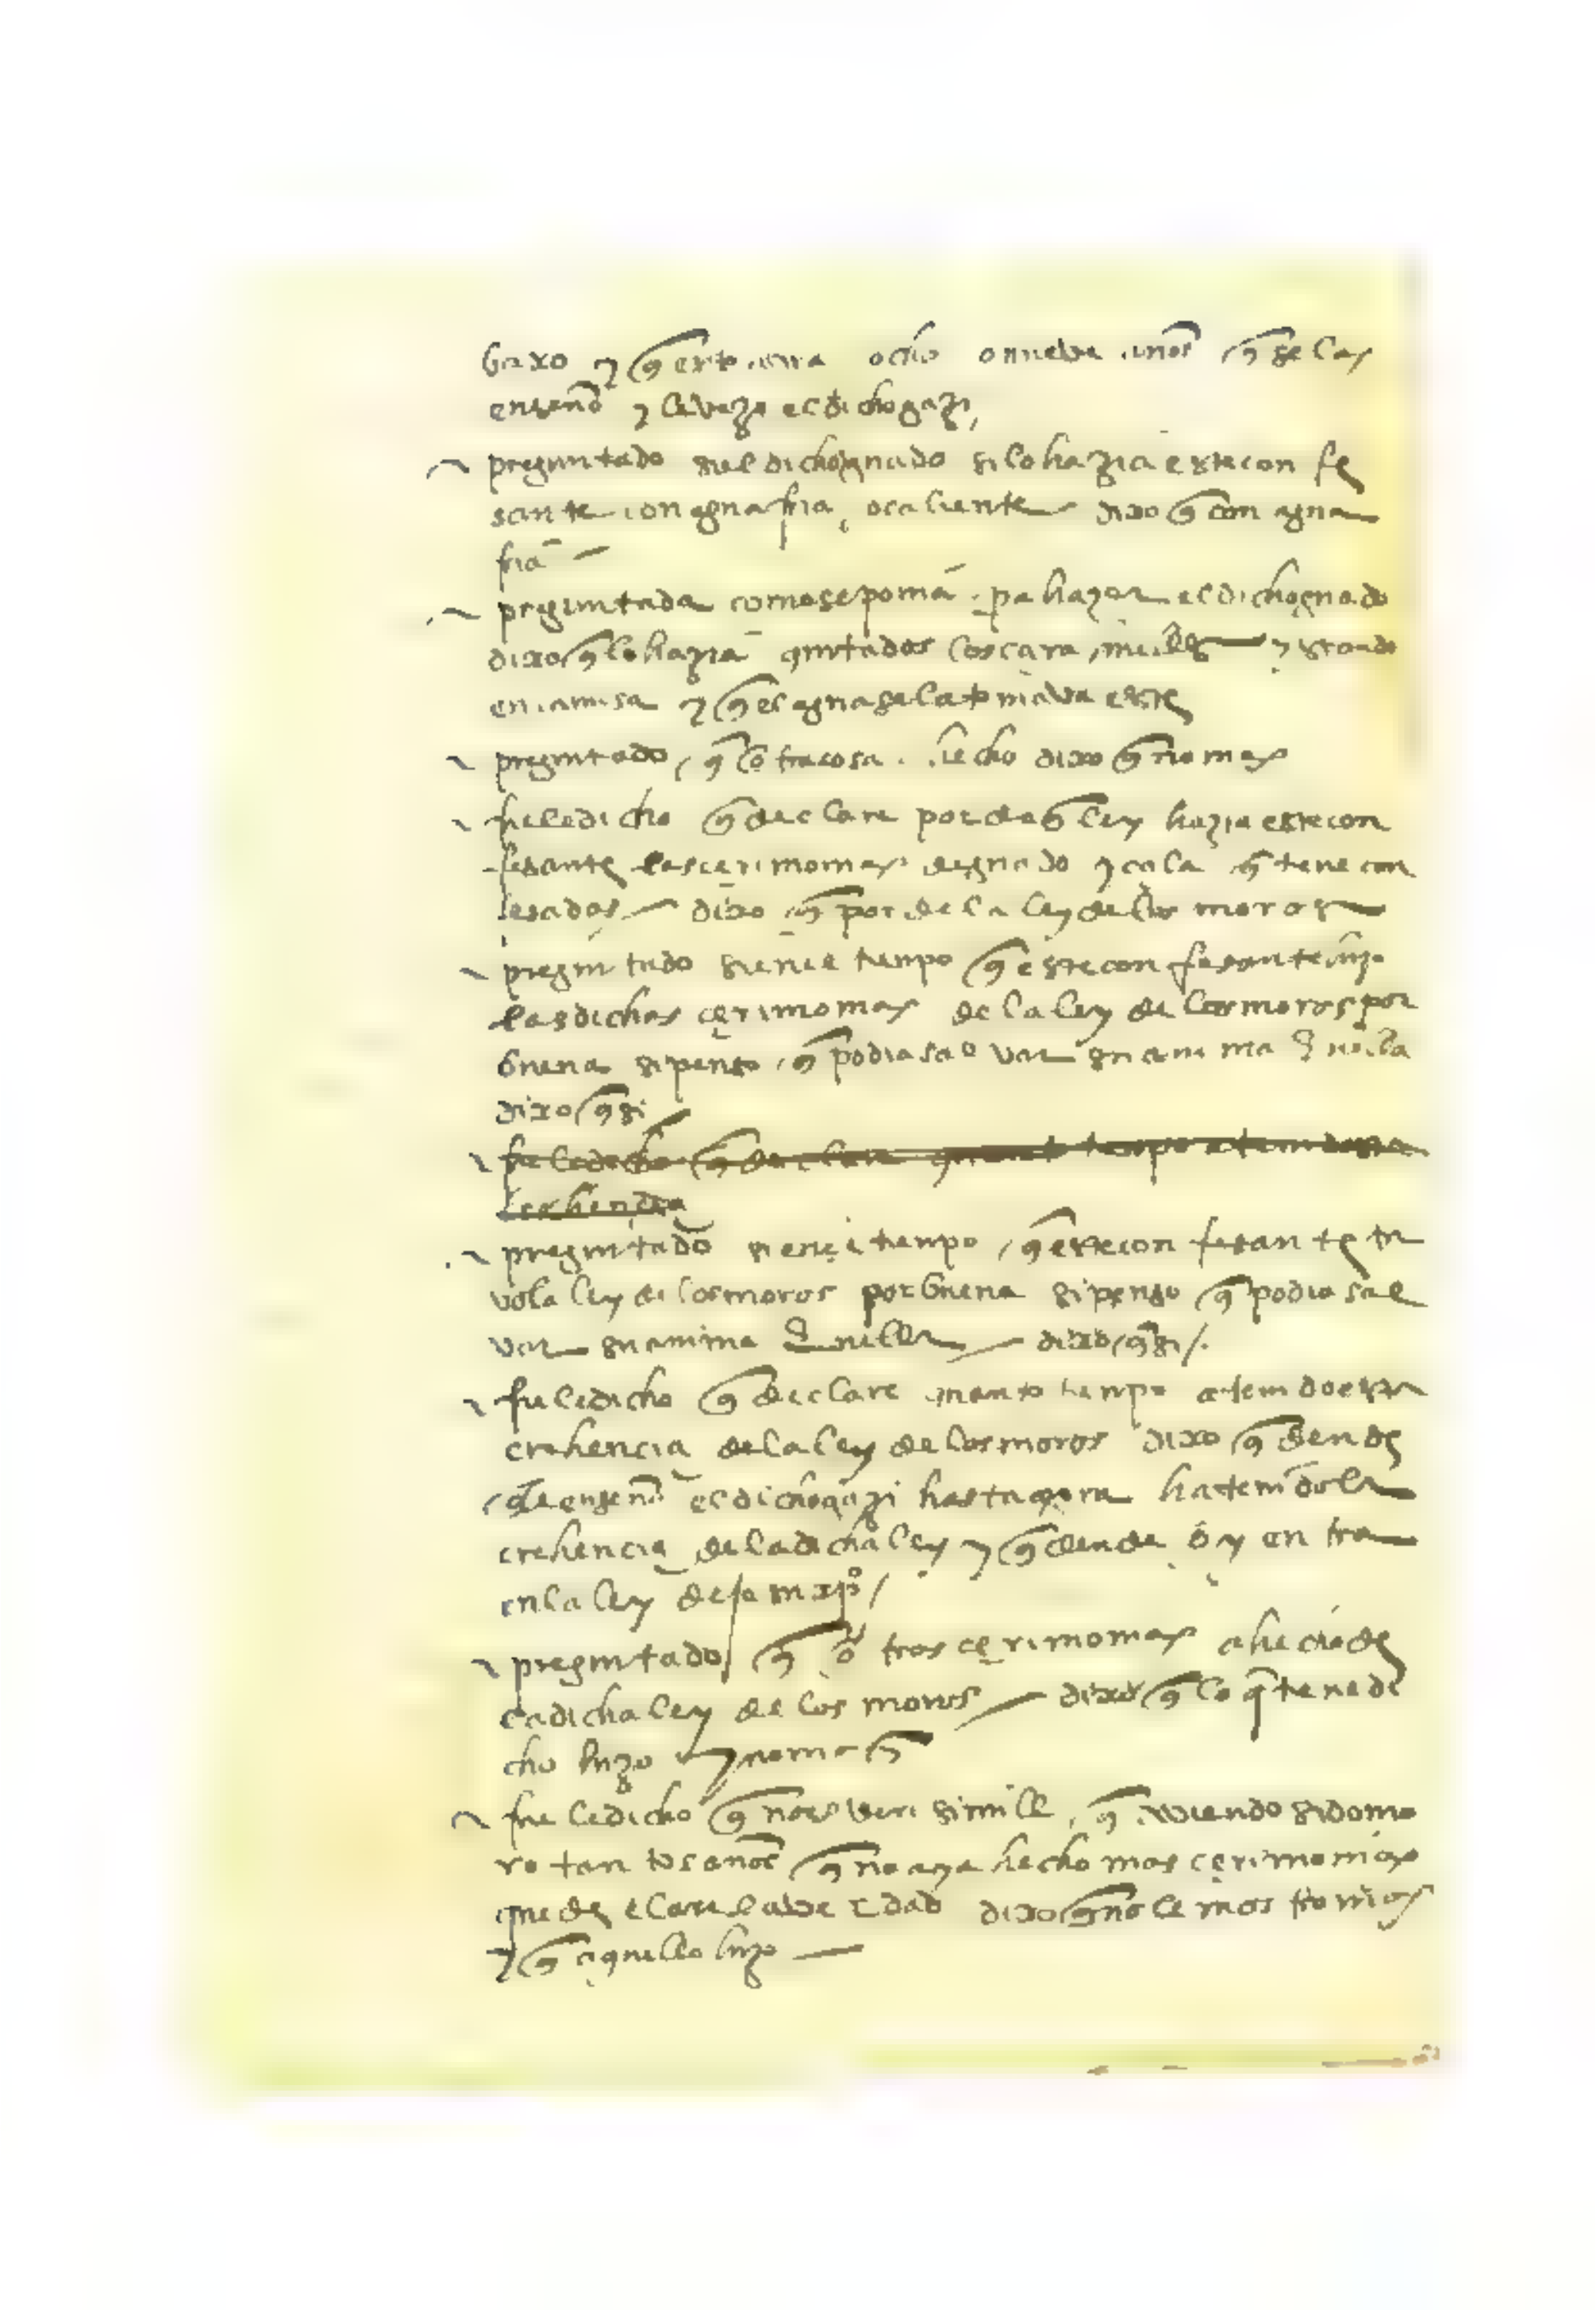 baxo y q esto avra ocho o nueve años q se las
enseño y le vezo el dicho gazi
preguntado si el dicho guado si lo hazia este confe
sante con agua fria o caliente dixo q con agua
fria
preguntado como se ponia pa hazer el dicho guado
dixo q lo hazia quitados los çara y estando
en camisa y q el agua se la tomava este
preguntado q otra cosa hecho dixo q no mas
fuele dicho q declare por de q ley hazia este con
fesante las cerimonias de guado y cala q tiene con
fesadas dixo q por de la ley de los moros
preguntado si en el tiempo q este confesante hizo
las dichas çerimonias de la ley de los moros por
buena si penso q podia salvar su anima
dixo q si
fuele dicho q declare quanto tiempo a tenido esta
crehencia
preguntado si en el tiempo q este confesante tu
vo la ley de los moros por buena si penso q podia sal
var su anima en ella dixo q si
fuele dicho q declare quanto tiempo a tenido esta
crehencia de la ley de los moros dixo q dende
q le enseño el dicho gazi hasta agora ha tenido la
crehencia de la dicha ley y q dende oy entra
en la ley de Jesu xpo
preguntado q otras çerimonias a hecho de
la dicha ley de los moros dixo q lo q tiene di
cho hizo y no mas
fuele dicho q no es verisimile q aviendo sido mo
ro tantos años q no aya hecho mas çerimonias
que de dixo q no le mostro mas
y q aquello hizo